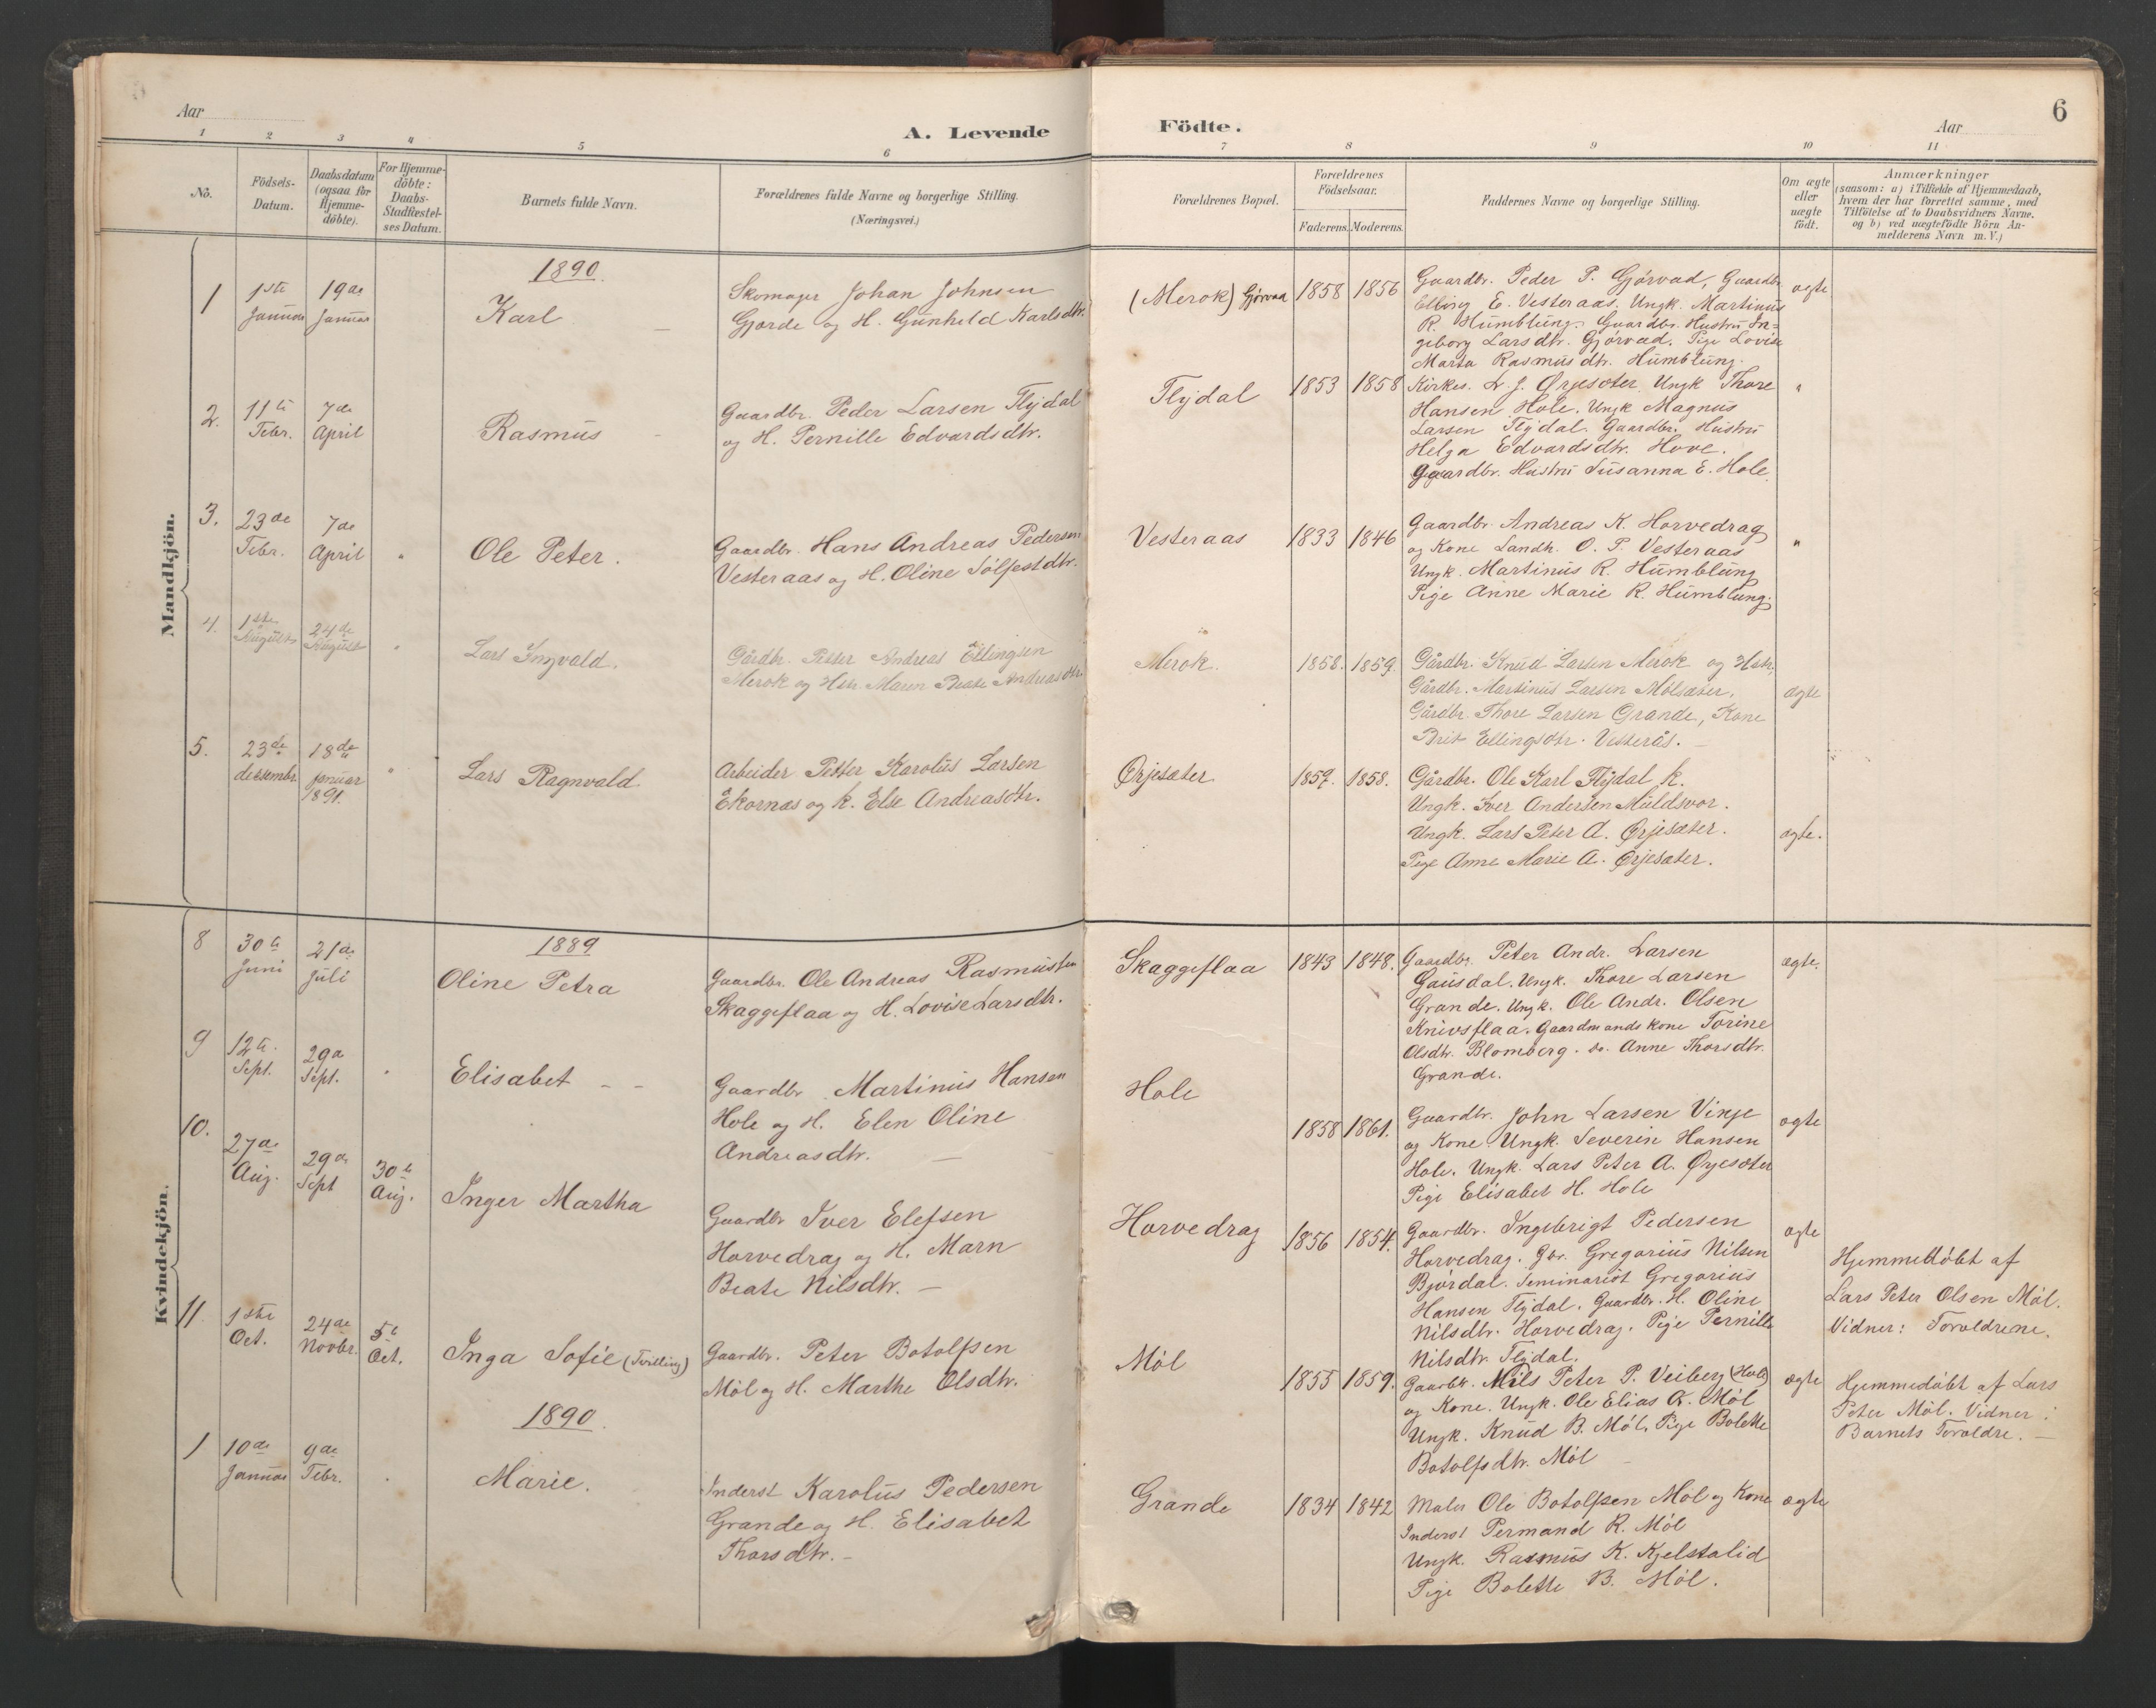 6
Aar
A. Levende Födte.
Aar
1 2 3 4 5 6 7 8 9 10 11
No.
Födsels-
Datum.
Daabsdatum
(ogsaa for
Hjemme-
döbte).
For Hjemme-
döbte:
Daabs-
Stadfæstel-
ses Datum.
Barnets fulde Navn.
Forældrenes fulde Navne og borgerlige Stilling.
(Næringsvei.)
Forældrenes Bopæl.
Forældrenes
Födselsaar.
Faderens. Moderens.
Faddernes Navne og borgerlige Stilling.
Om ægte
eller
uægte
födt.
Anmærkninger
(saasom: a) i Tilfælde af Hjemmedaab,
hvem der har forrettet samme, med
Tilföielse af to Daabsvidners Navne.
og b) ved uægtefödte Börn An-
melderens Navn m.V.)
Mandkjön.
1890.
1
1ste
Januar
19de
Januar
Karl
Skomager Johan Johnsen
Gjørde og H. Gunhild Karlsdtr.
(Merok) Gjørvad
1858 1856
Gaardbr. Peder P. Gjørvad, Gaardbr.
Elling E. Vesteraas. Ungk. Martinus
R. Humblung. Gaardbr. Hustru In=
geborg Larsdtr. Gjørvad. Pige Lovise
Marta Rasmusdtr. Humblung.
ægte
2.
11te
Febr.
7de
April
Rasmus
Gaardbr. Peder Larsen Flydal
og H. Pernille Edvardsdtr.
Flydal
1853 1858
Kirkes. L. J. Ørjesæter. Ungk Thore
Hansen Hole. Ungk Magnus
Larsen Flydal. Gaardbr. Hustru
Helga Edvardsdtr. Hove.
Gaardbr. Hustru Susanna E. Hole.
"
3.
23de
Febr.
7de
April
"
Ole Peter.
Gaardbr. Hans Andreas Pedersen
Vesteraas og H. Oline Sølfestdtr.
Vesteraas
1833 1846
Gaardbr. Andreas K. Horvedrag
og Kone Landh. O. P. Vesteraas
Ungk. Martinus R. Humblung
Pige Anne Marie R. Humblung.
"
4.
1ste
August
24de
August
"
Lars Ingvald.
Gårdbr. Petter Andreas Ellingsen
Merok og Hstr. Maren Beate Andreasdtr.
Merok.
1858. 1859.
Gårdbr. Knud Larsen Merok og Hstr.
Gårdbr. Martinus Larsen Mölsæter.
Gårdbr. Thore Larsen Grande, Kone
Brit Ellingsdtr. Vesterås.
ægte
5.
23de
desembr.
18de
januar
1891.
"
Lars Ragnvald.
Arbeider Petter Karolus Larsen
Ekornæs og k. Else Andreasdtr.
Ørjesæter
1859. 1858.
Gårdbr. Ole Karl Flydal k.
Ungk. Iver Andersen Muldsvor.
Ungk. Lars Peter A. Ørjesæter.
Pige Anne Marie A. Ørjesæter.
ægte.
Kvindekjön.
1889
8
30te
Juni
21de
Juli
Oline Petra
Gaardbr. Ole Andreas Rasmussen
Skaggeflaa og H. Lovise Larsdtr.
Skaggeflaa
1843 1848.
Gaardbr. Peter Andr. Larsen
Gausdal. Ungk. Thore Larsen
Grande. Ungk. Ole Andr. Olsen
Knivsflaa. Gaardmands kone Torine
Olsdtr. Blomberg. do. Anne Thorsdtr.
Grande.
ægte.
9
12te
Sept.
29de
Sept.
"
Elisabet
Gaardbr. Martinus Hansen
Hole og H. Elen Oline
Andreasdtr.
Hole
1858 1861.
Gaardbr. John Larsen Vinje
og Kone. Ungk. Severin Hansen
Hole. Ungk. Lars Peter A. Ørjesæter
Pige Elisabet H. Hole
ægte
10.
27de
Aug.
29de
Sept
30te
Aug.
Inger Martha
Gaardbr Iver Elefsen
Horvedrag og H. Marn
Beate Nilsdtr.
Horvedrag
1856 1854.
Gaardbr. Ingebrigt Pedersen
Horvedrag. Gbr. Gregorius Nilsen
Bjørdal. Seminarist Gregorius
Hansen Flydal. Gaardbr. H. Oline
Nilsdtr. Horvedrag. Pige Pernille
Nilsdtr. Flydal.
ægte
Hjemmedøbt af
Lars Peter Olsen Møl.
Vidner: Forældrene.
11.
1ste
Oct.
24de
Novbr.
5te
Oct.
Inga Sofie (Tvilling)
Gaardbr. Peter Botolfsen
Møl og H. Marthe Olsdtr.
Møl
1855 1859.
Gaardbr. Nils Peter P. Veiberg (Hole)
og Kone. Ungk. Ole Elias R. Møl
Ungk. Knud B. Møl. Pige Bolette
Botolfsdtr. Møl
ægte
Hjemmedøbt af Lars
Peter Møl. Vidner:
Barnets Forældre.
1890.
1
10de
Januar
9de
Febr.
"
Marie.
Inderst Karolus Pedersen
Grande og H. Elisabet
Thorsdtr.
Grande
1834 1842
Maler Ole Botolfsen Møl og Kone
Inderst Permand R. Møl
Ungk. Rasmus K. Kjelstalid
Pige Bolette B. Møl.
ægte